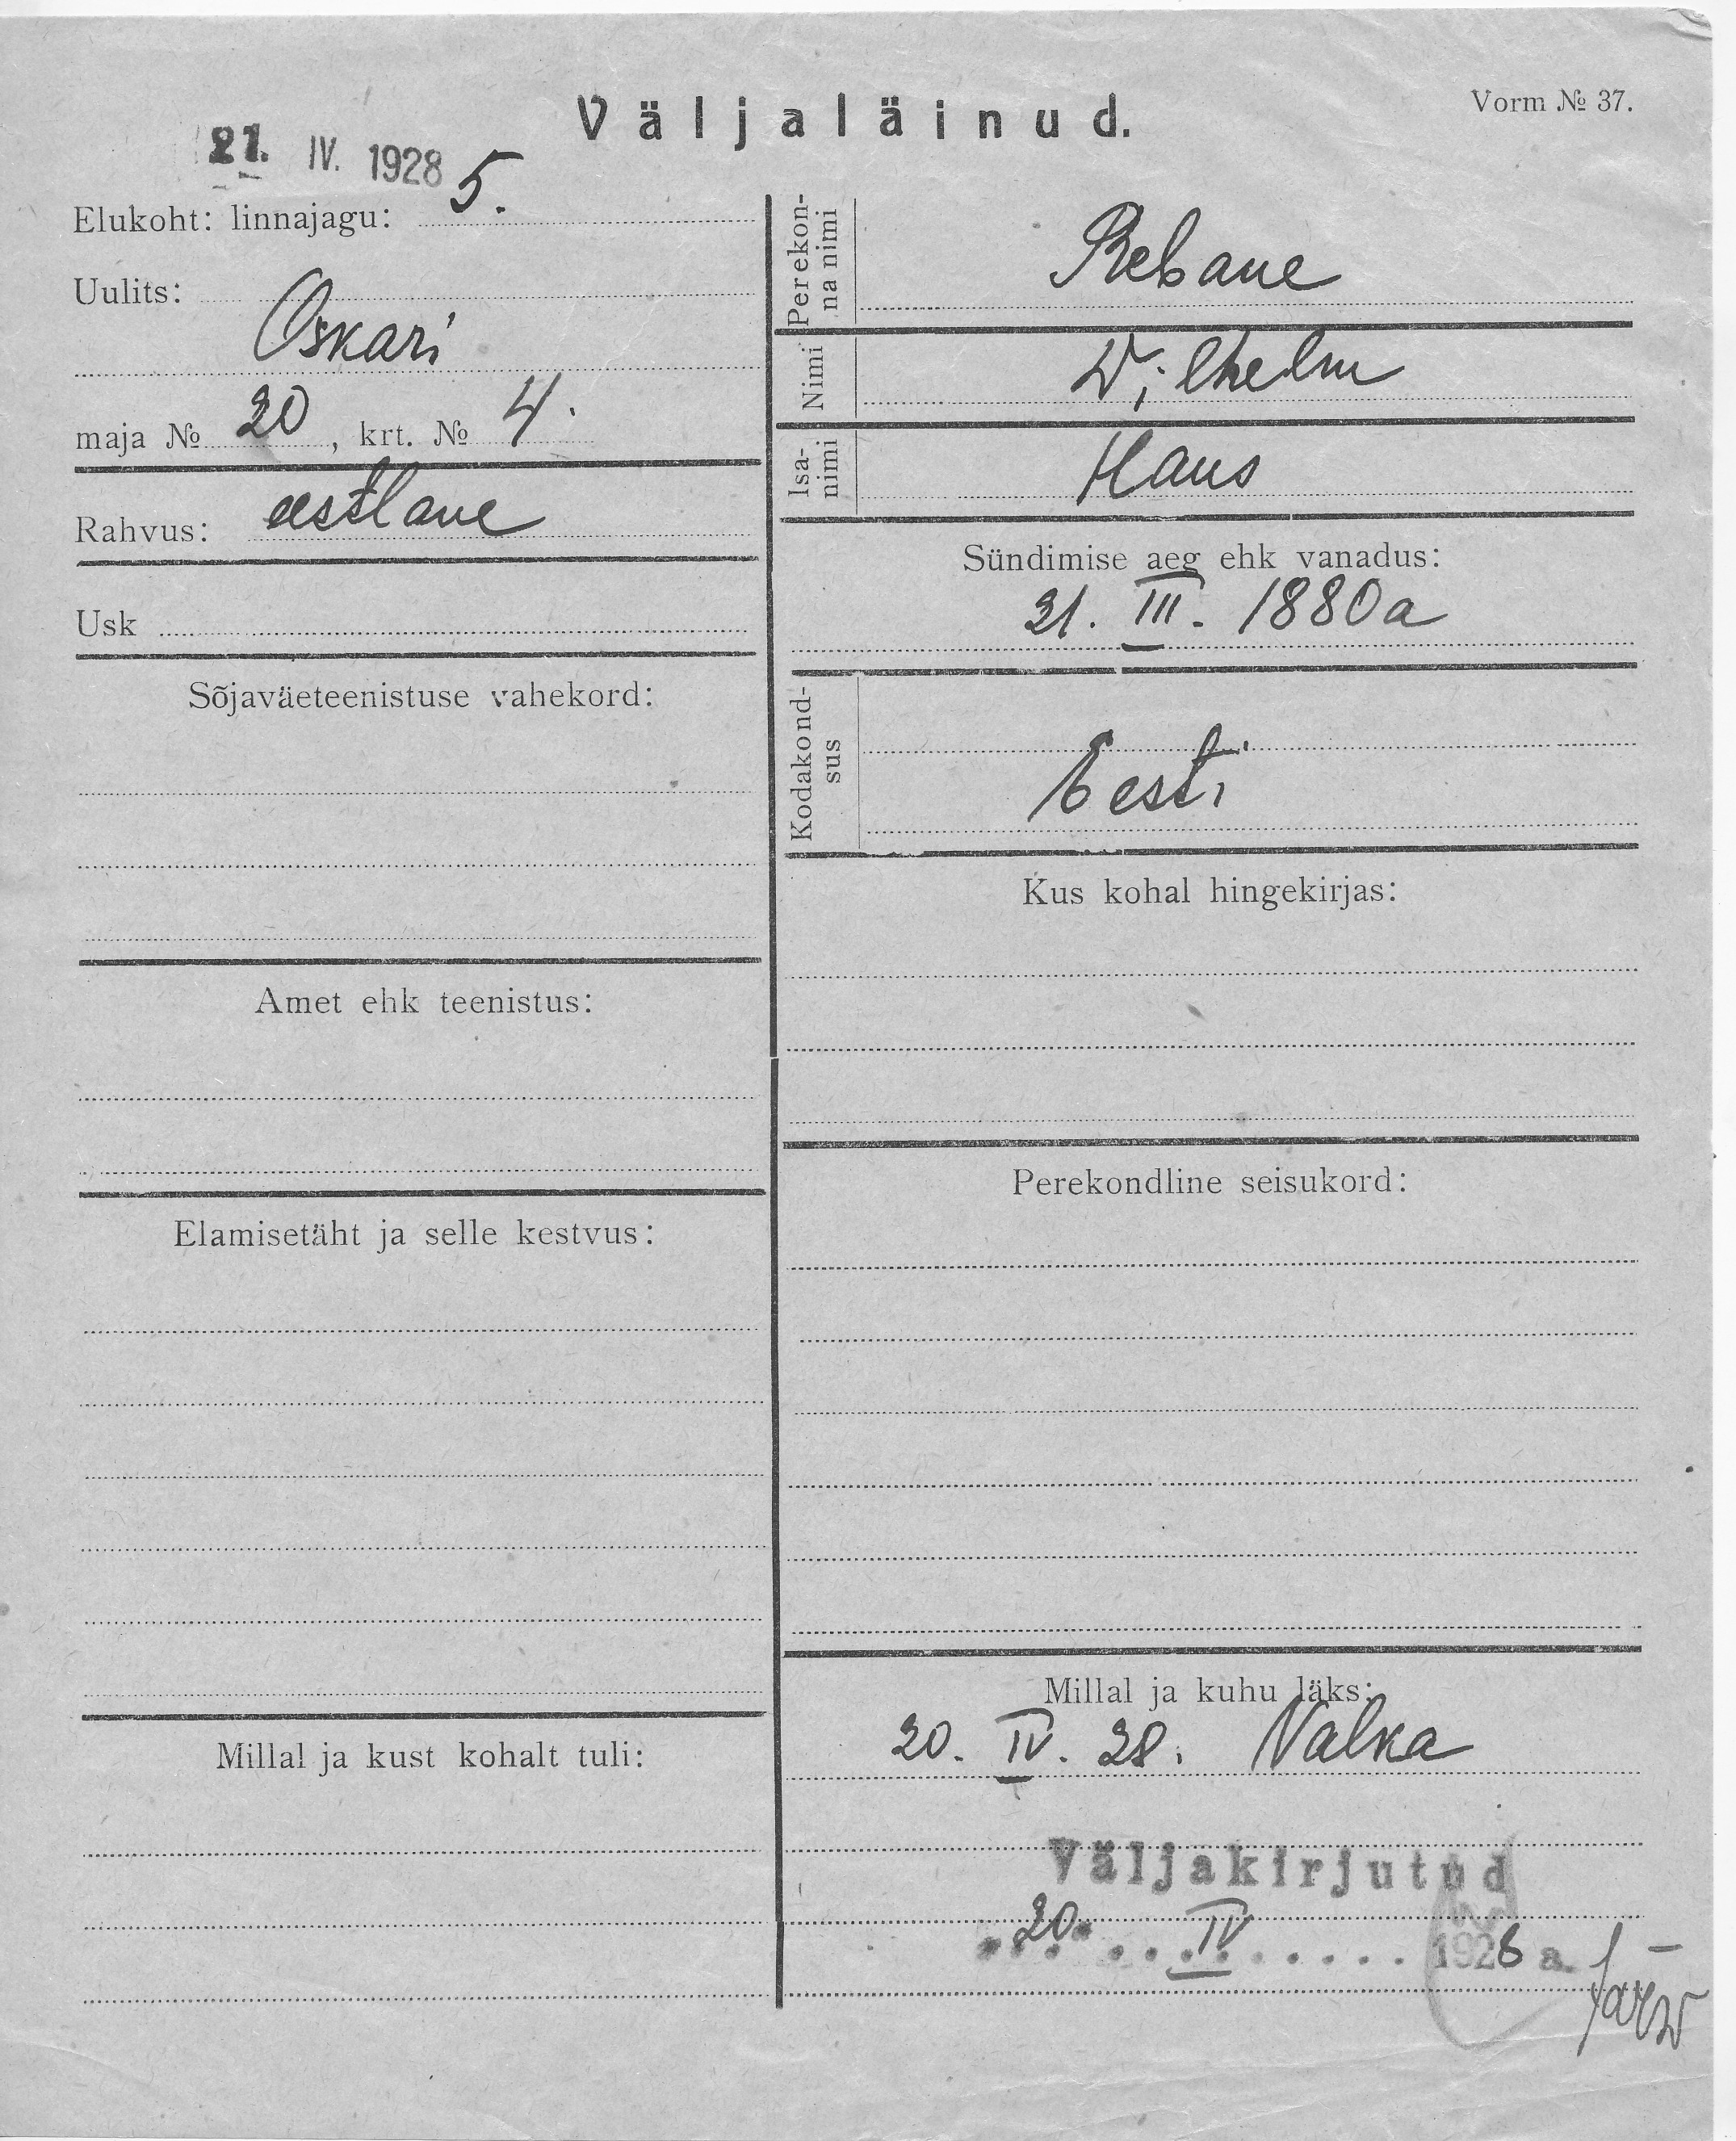 Väljaläinud.
Vorm № 37.
21. IV. 1928
Elukoht: linnajagu: 5.
Uulits:
Oskari
maja № 20, krt. № 4.
Rahvus: eestlane
Usk
Sõjaväeteenistuse vahekord:
Amet ehk teenistus:
Elamisetäht ja selle kestvus:
Millal ja kust kohalt tuli:
Perekon-
na nimi
Rebane
Nimi
Wilhelm
Isa-
nimi
Hans
Sündimise aeg ehk vanadus:
21. III. 1880a
Kodakond-
sus
Eesti
Kus kohal hingekirjas:
Perekondline seisukord:
Millal ja kuhu läks:
20. IV. 28. Valka
Väljakirjutud
20 IV 1928 a.